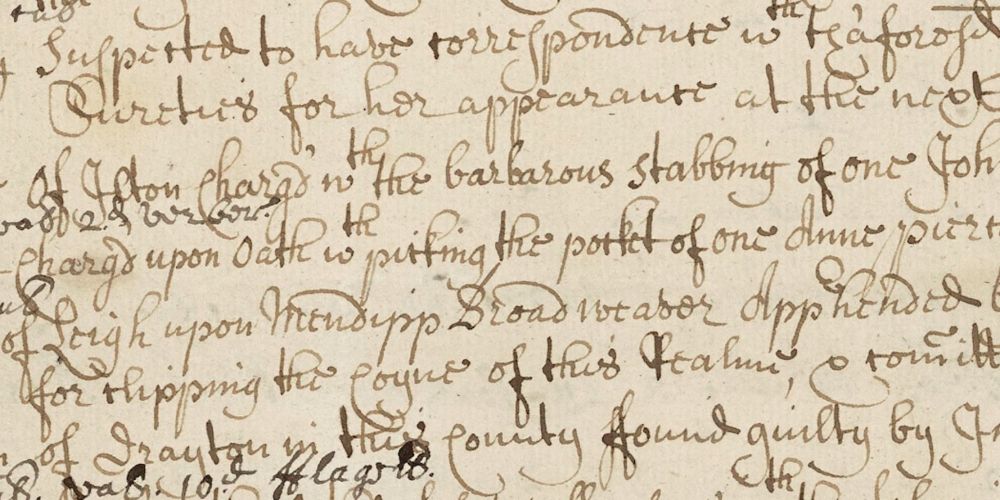 Suspected to have correspondence wth th'aforesd
Sureties for her appearance at the next
Of Ilton Charg'd wth the barbarous stabbing of one Joh
Charg'd upon Oath wth picking the pocket of one Anne pierc
of Leigh upon Mendipp Broadweaver Apphended
for clipping the Coyne of this Realme, & comitt
of Drayton in this County ffound guilty by
val. 10d fflagell.